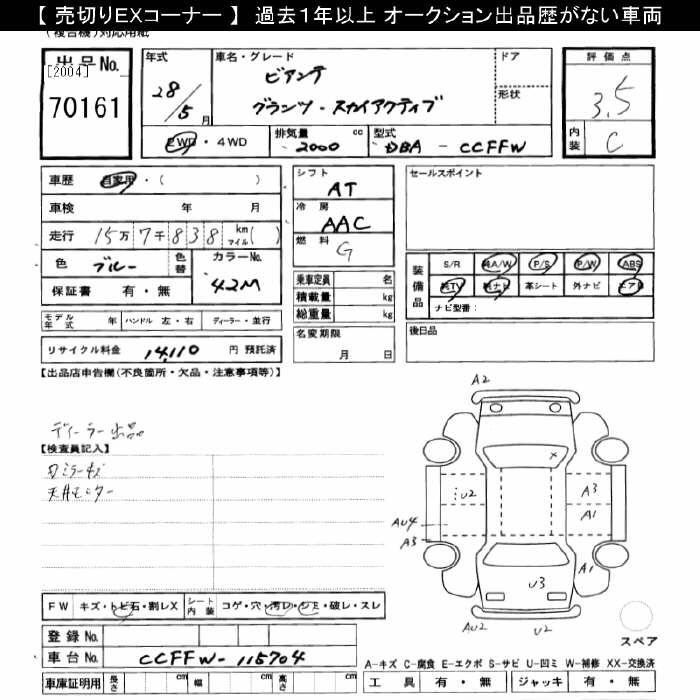 【 売切りEXコーナー 】 過去1年以上 オークション出品歴がない車両
(複合機)対応用紙
出品No.
[2004]
70161
年式
28/5月
車名・グレード
ビアンテ
グランツ - スカイアクティブ
ドア
形状
評価点
3.5
内装
C
2WD・4WD
排気量
2000
cc
型式
DBA - CCFFW
車歴
自家用・( )
車検 年 月
走行 15万7千838 km マイル( )
色 ブルー
色替
カラーNo.
42M
保証書 有・無
シフト
AT
冷房
AAC
燃料
G
乗車定員 名
積載量 kg
総重量 kg
名変期限
月 日
セールスポイント
装備品
S/R
純A/W
P/S
P/W
ABS
純TV
純ナビ
革シート
外ナビ
エアB
ナビ型番:
後日品
モデル年式 年
ハンドル 左・右
ディーラー・並行
リサイクル料金 14,110 円 預託済
【出品店申告欄(不良箇所・欠品・注意事項等)】
ディーラー出品
【検査員記入】
天井モニター
A2
U2
A3
A1
AU4
A3
A1
U3
AU2
U2
スペア
FW
キズ・トビ石・割レX
シート内装
コゲ・穴・汚レ・シミ・破レ・スレ
登録No.
車台No.
CCFFW-115704
車庫証明用
長さ cm
幅 cm
高さ cm
A-キズ C-腐食 E-エクボ S-サビ U-凹ミ W-補修 XX-交換済
工具 有・無
ジャッキ 有・無